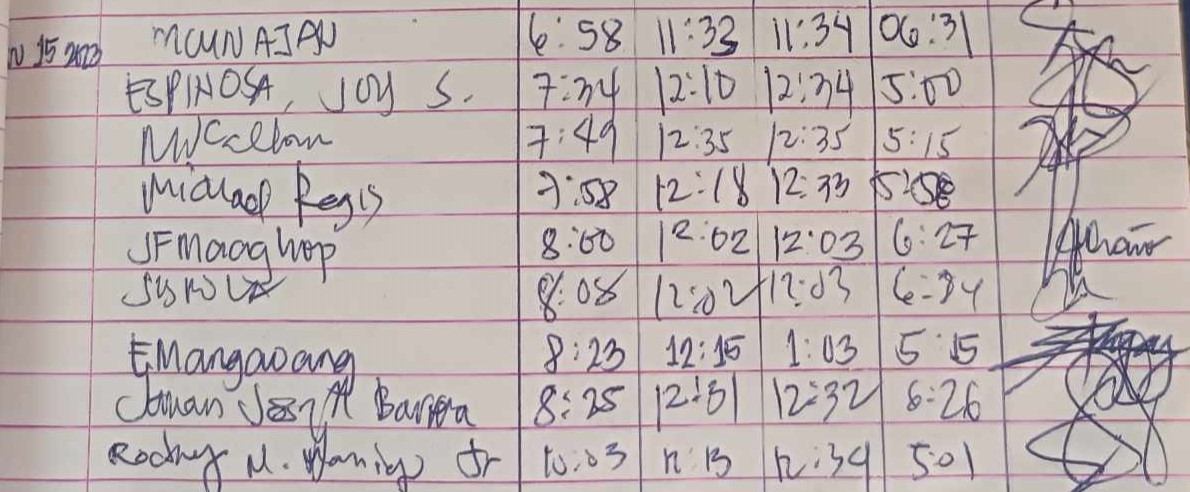 N 15 2023 MCUNAJAN 6:58 11:33 11:34 06:31
ESPINOSA, JOY S. 7:34 12:10 12:34 5:00
7:49 12:35 12:35 5:15
Michael Regis 7:58 12:18 12:33 5:58
JFMaaghop 8:00 12:02 12:03 6:27
8:08 12:02 12:03 6:34
EMangaoang 8:23 12:15 1:03 5:15
Barrera 8:25 12:31 12:32 6:26
Rodney M. Jr 10:03 12:13 12:34 5:01